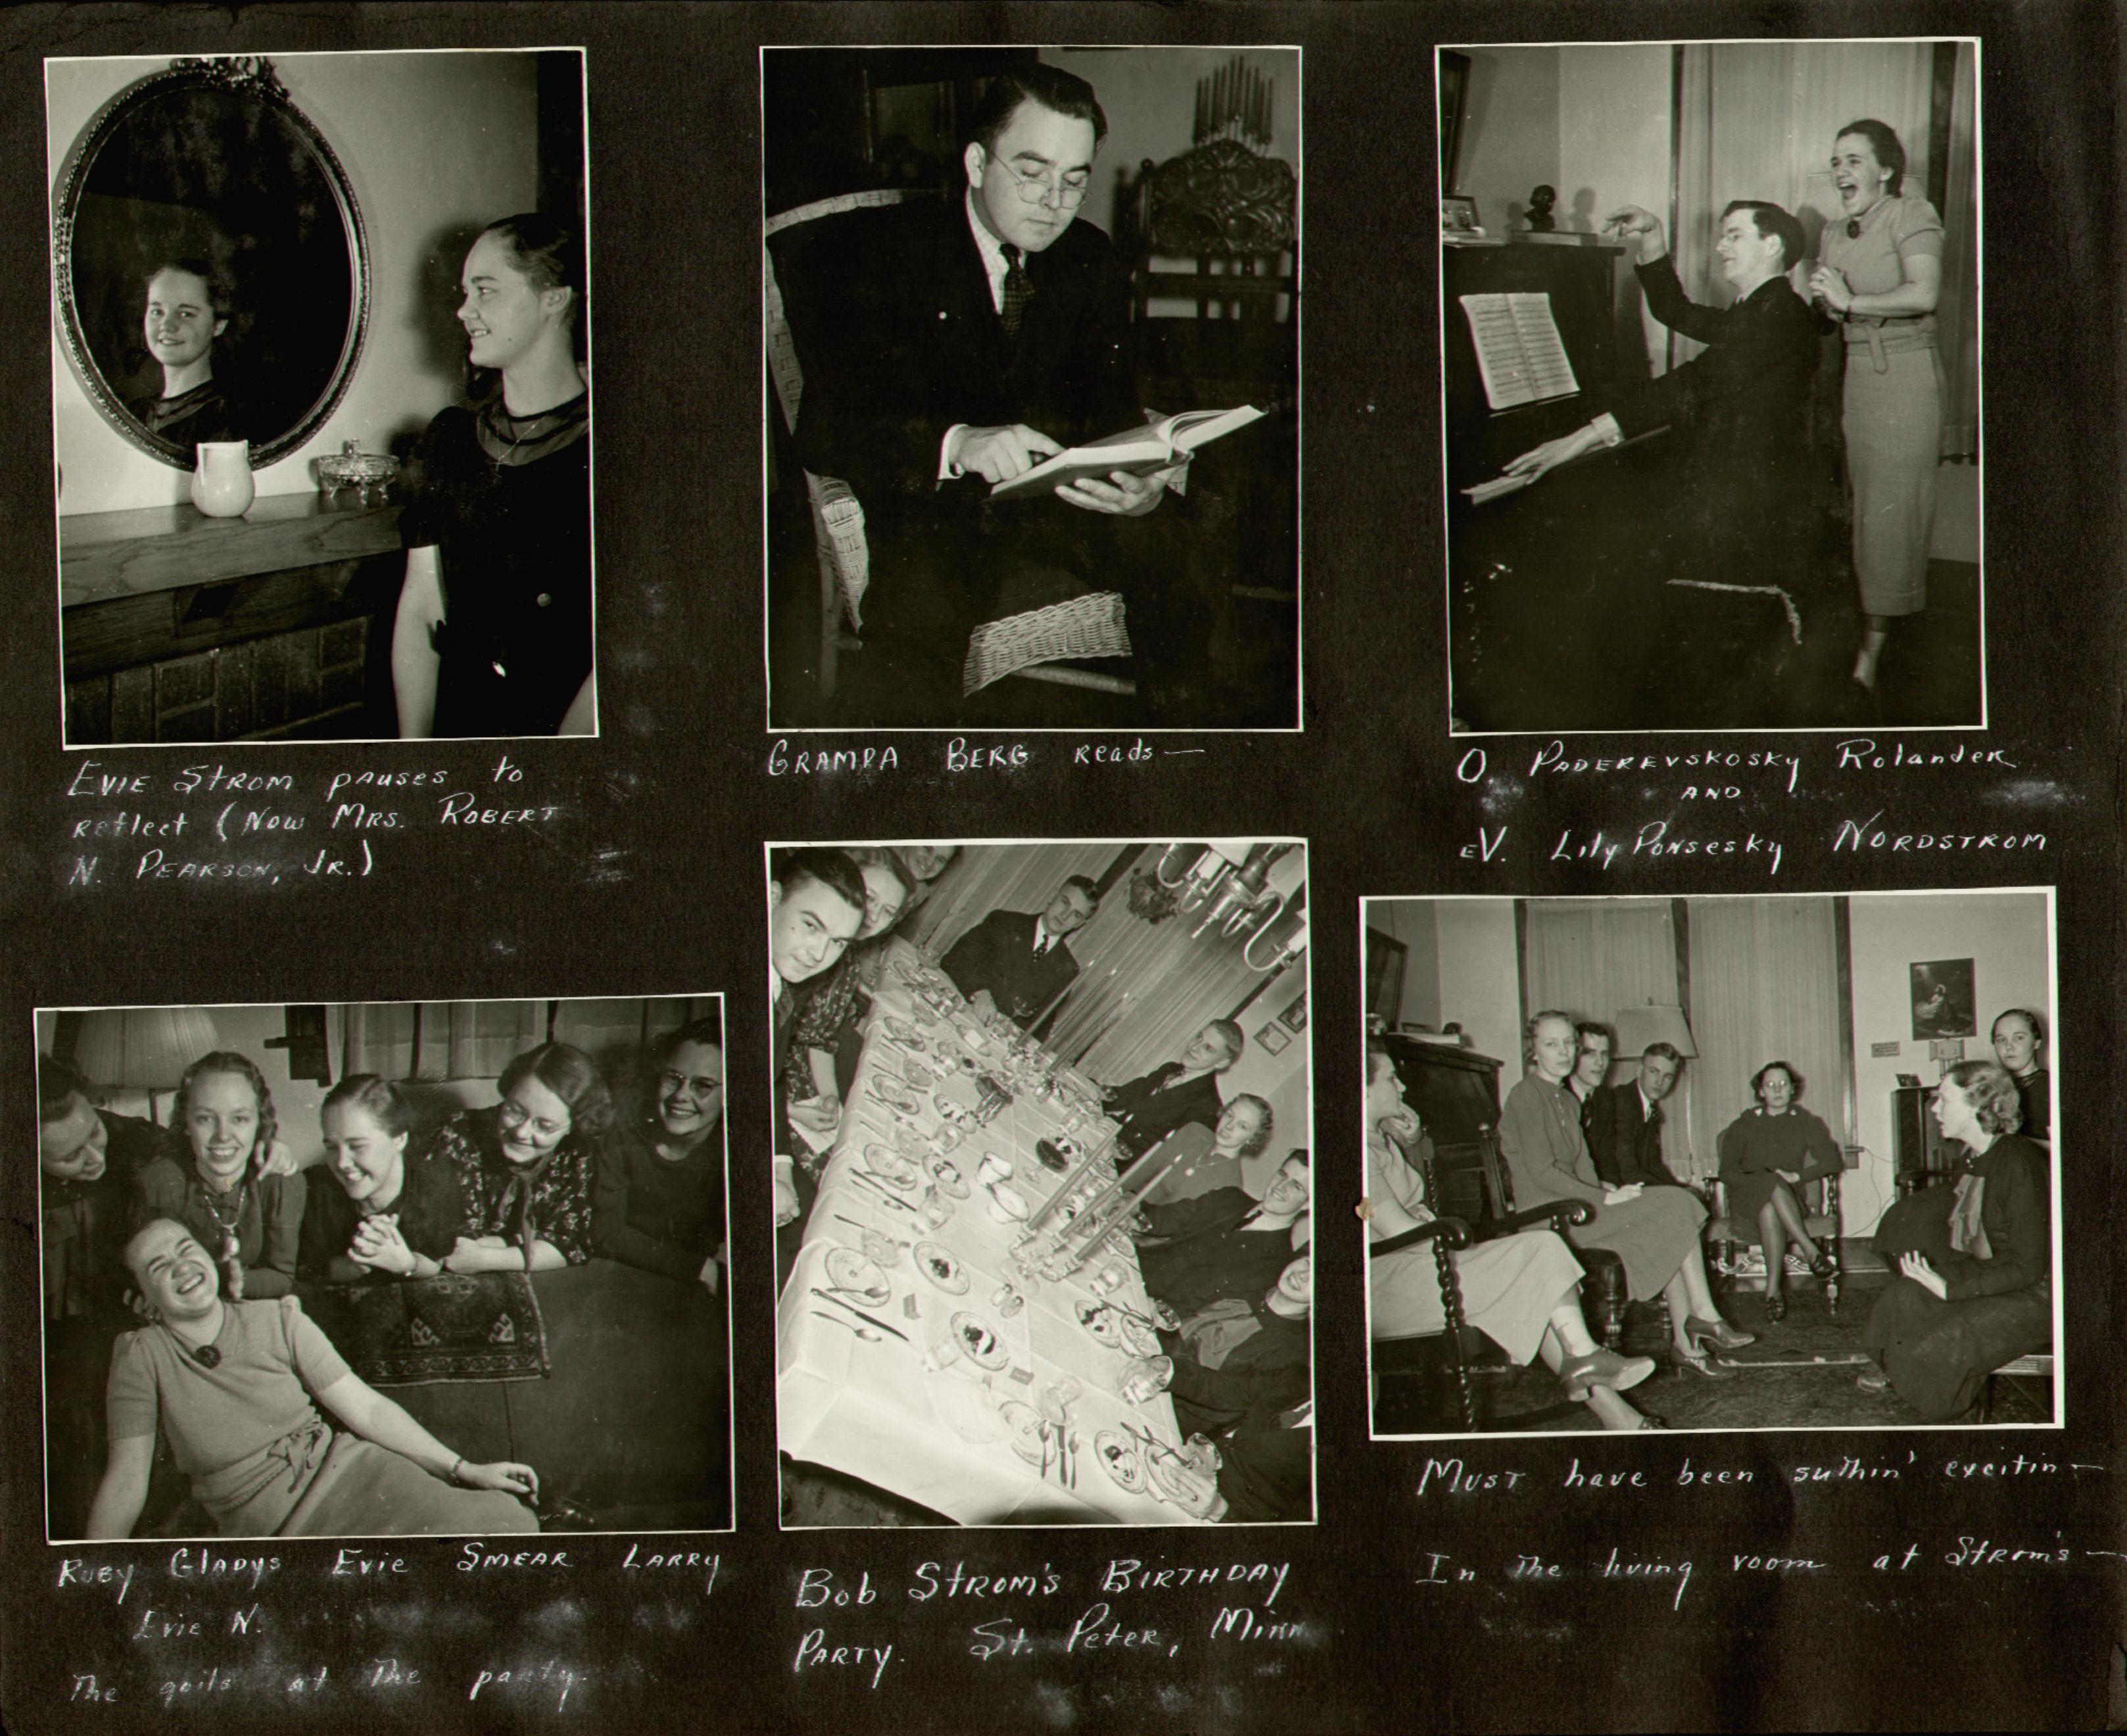 EVIE STROM pauses to
reflect (Now MRS. ROBERT
N. PEARSON, JR.)
GRAMPA BERG reads—
O. PADEREVSKOSKY Rolander
AND
eV. Lily Ponsesky NORDSTROM
RUBY GLADYS EVIE SMEAR LARRY
Evie N.
The goils at The party.
Bob STROM'S BIRTHDAY
PARTY. St. Peter, Minn.
MUST have been suthin' excitin—
In The living room at Strom's—